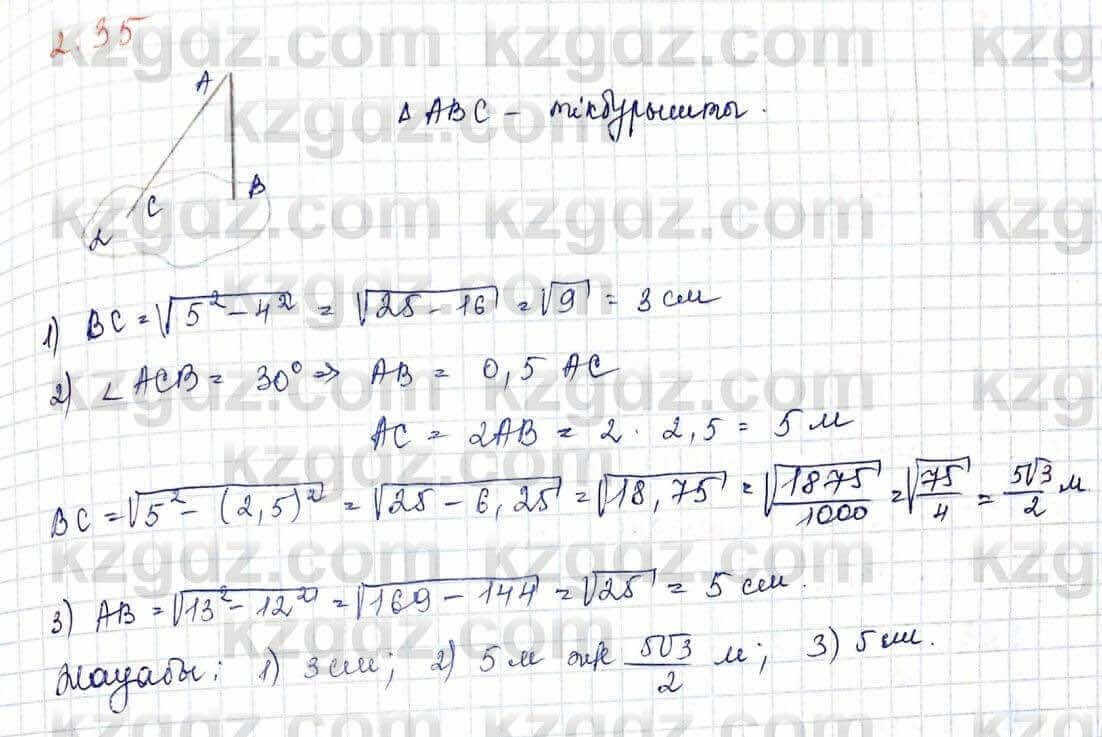 2.35
A
△ABC - тікбұрышты.
B
C
α
1) BC = √(5² - 4²) = √(25 - 16) = √9 = 3 см
2) ∠ACB = 30° ⇒ AB = 0,5 AC
AC = 2AB = 2 · 2,5 = 5 м
BC = √(5² - (2,5)²) = √(25 - 6,25) = √(18,75) = √(1875/1000) = √(75/4) = 5√3/2 м
3) AB = √(13² - 12²) = √(169 - 144) = √25 = 5 см.
Жауабы: 1) 3 см; 2) 5 м және 5√3/2 м; 3) 5 см.
kzgdz.com